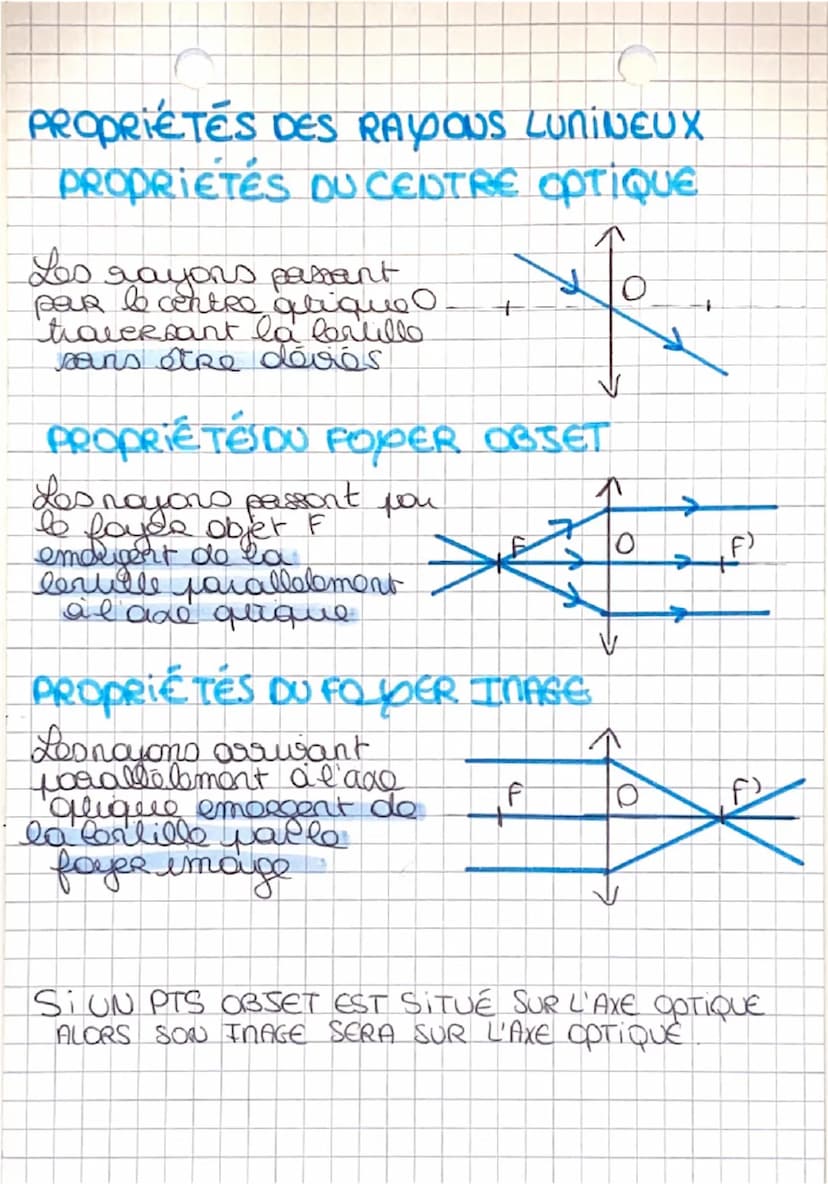 PROPRIÉTÉS DES RAYONS LUMINEUX
PROPRIÉTÉS DU CENTRE OPTIQUE
Les rayons passant
par le centre optique O
traversant la lentille
sans être déviés
O
PROPRIÉTÉS DU FOYER OBJET
Les rayons passant par
le foyer objet F
émergent de la
lentille parallèlement
à l'axe optique
F
O
F'
PROPRIÉTÉS DU FOYER IMAGE
Les rayons arrivant
parallèlement à l'axe
optique émergent de
la lentille par le
foyer image
F
O
F'
Si UN PTS OBJET EST SITUÉ SUR L'AXE OPTIQUE
ALORS SON IMAGE SERA SUR L'AXE OPTIQUE.